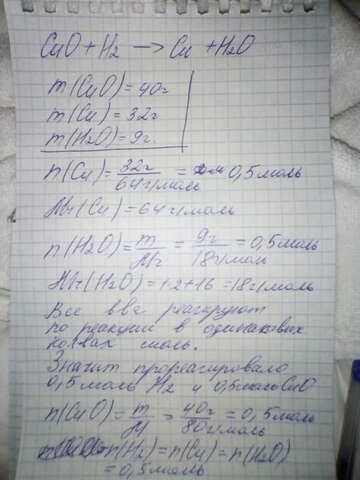 CuO + H2 → Cu + H2O
m(CuO) = 40г
m(Cu) = 32г
m(H2O) = 9г.
n(Cu) = 32г / 64г/моль = 0,5 моль
Mr(Cu) = 64 г/моль
n(H2O) = m / Mr = 9г / 18г/моль = 0,5 моль
Mr(H2O) = 1·2+16 = 18 г/моль
Все вва реагируют
по реакции в одинаковых
кол-вах моль.
Значит прореагировало
0,5 моль H2 и 0,5 моль CuO
n(CuO) = m / M = 40г / 80г/моль = 0,5 моль
n(H2) = n(Cu) = n(H2O)
= 0,5 моль